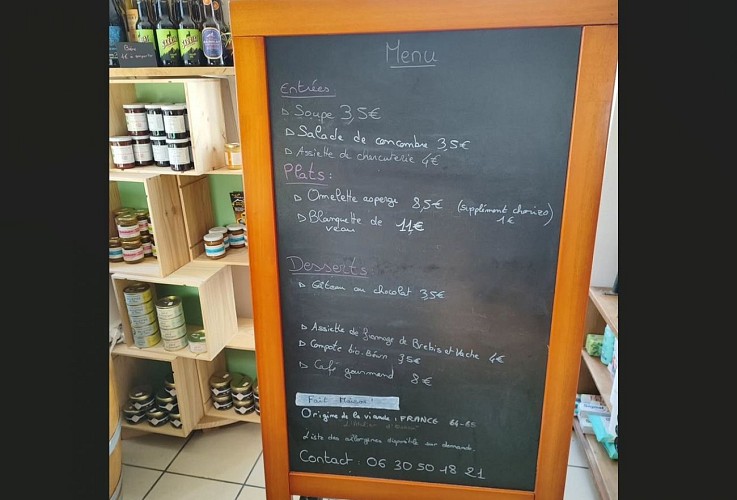 Menu
Entrées
Soupe 3,5€
Salade de concombre 3,5€
Assiette de charcuterie 4€
Plats :
Omelette asperge 8,5€ (supplément chorizo)
1€
Blanquette de 11€
veau
Desserts
Gâteau au chocolat 3,5€
Assiette de fromage de Brebis et Vache 4€
Compote bio Béarn 3,5€
Café gourmand 8€
Fait Maison
Origine de la viande : FRANCE 64-65
Liste des allergènes disponible sur demande.
Contact : 06 30 50 18 21